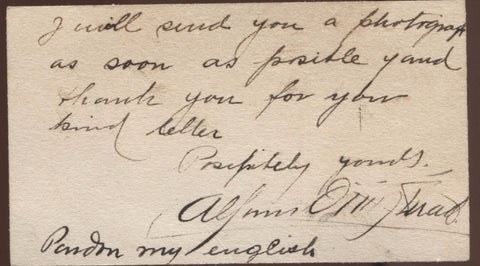 I will send you a photograph
as soon as posible yand
thank you for your
kind letter
Positively yours.
Pardon my english